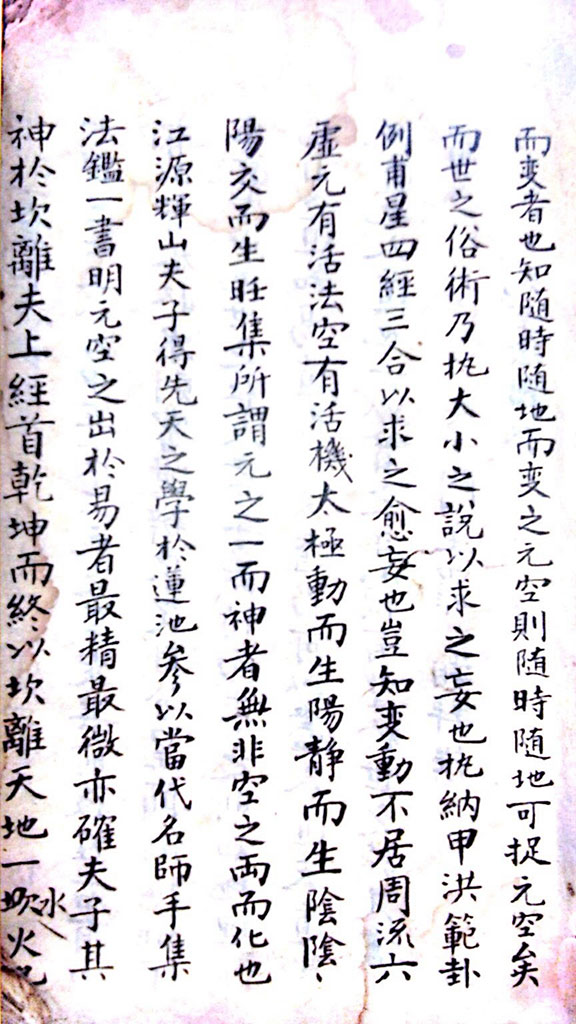 而变者也知随時随地而变之元空則随時随地可捉元空矣
而世之俗術乃执大小之說以求之妄也执納甲洪範卦
例甫星四經三合以求之愈妄也豈知变動不居周流六
虛元有活法空有活機太極動而生陽静而生陰陰、
陽交而生旺集所謂元之一而神者無非空之両而化也
江源輝山夫子得先天之學於蓮池參以當代名師手集
法鑑一書明元空之出於易者最精最微亦確夫子其
神於坎離夫上經首乾坤而終以坎離天地一坎水火